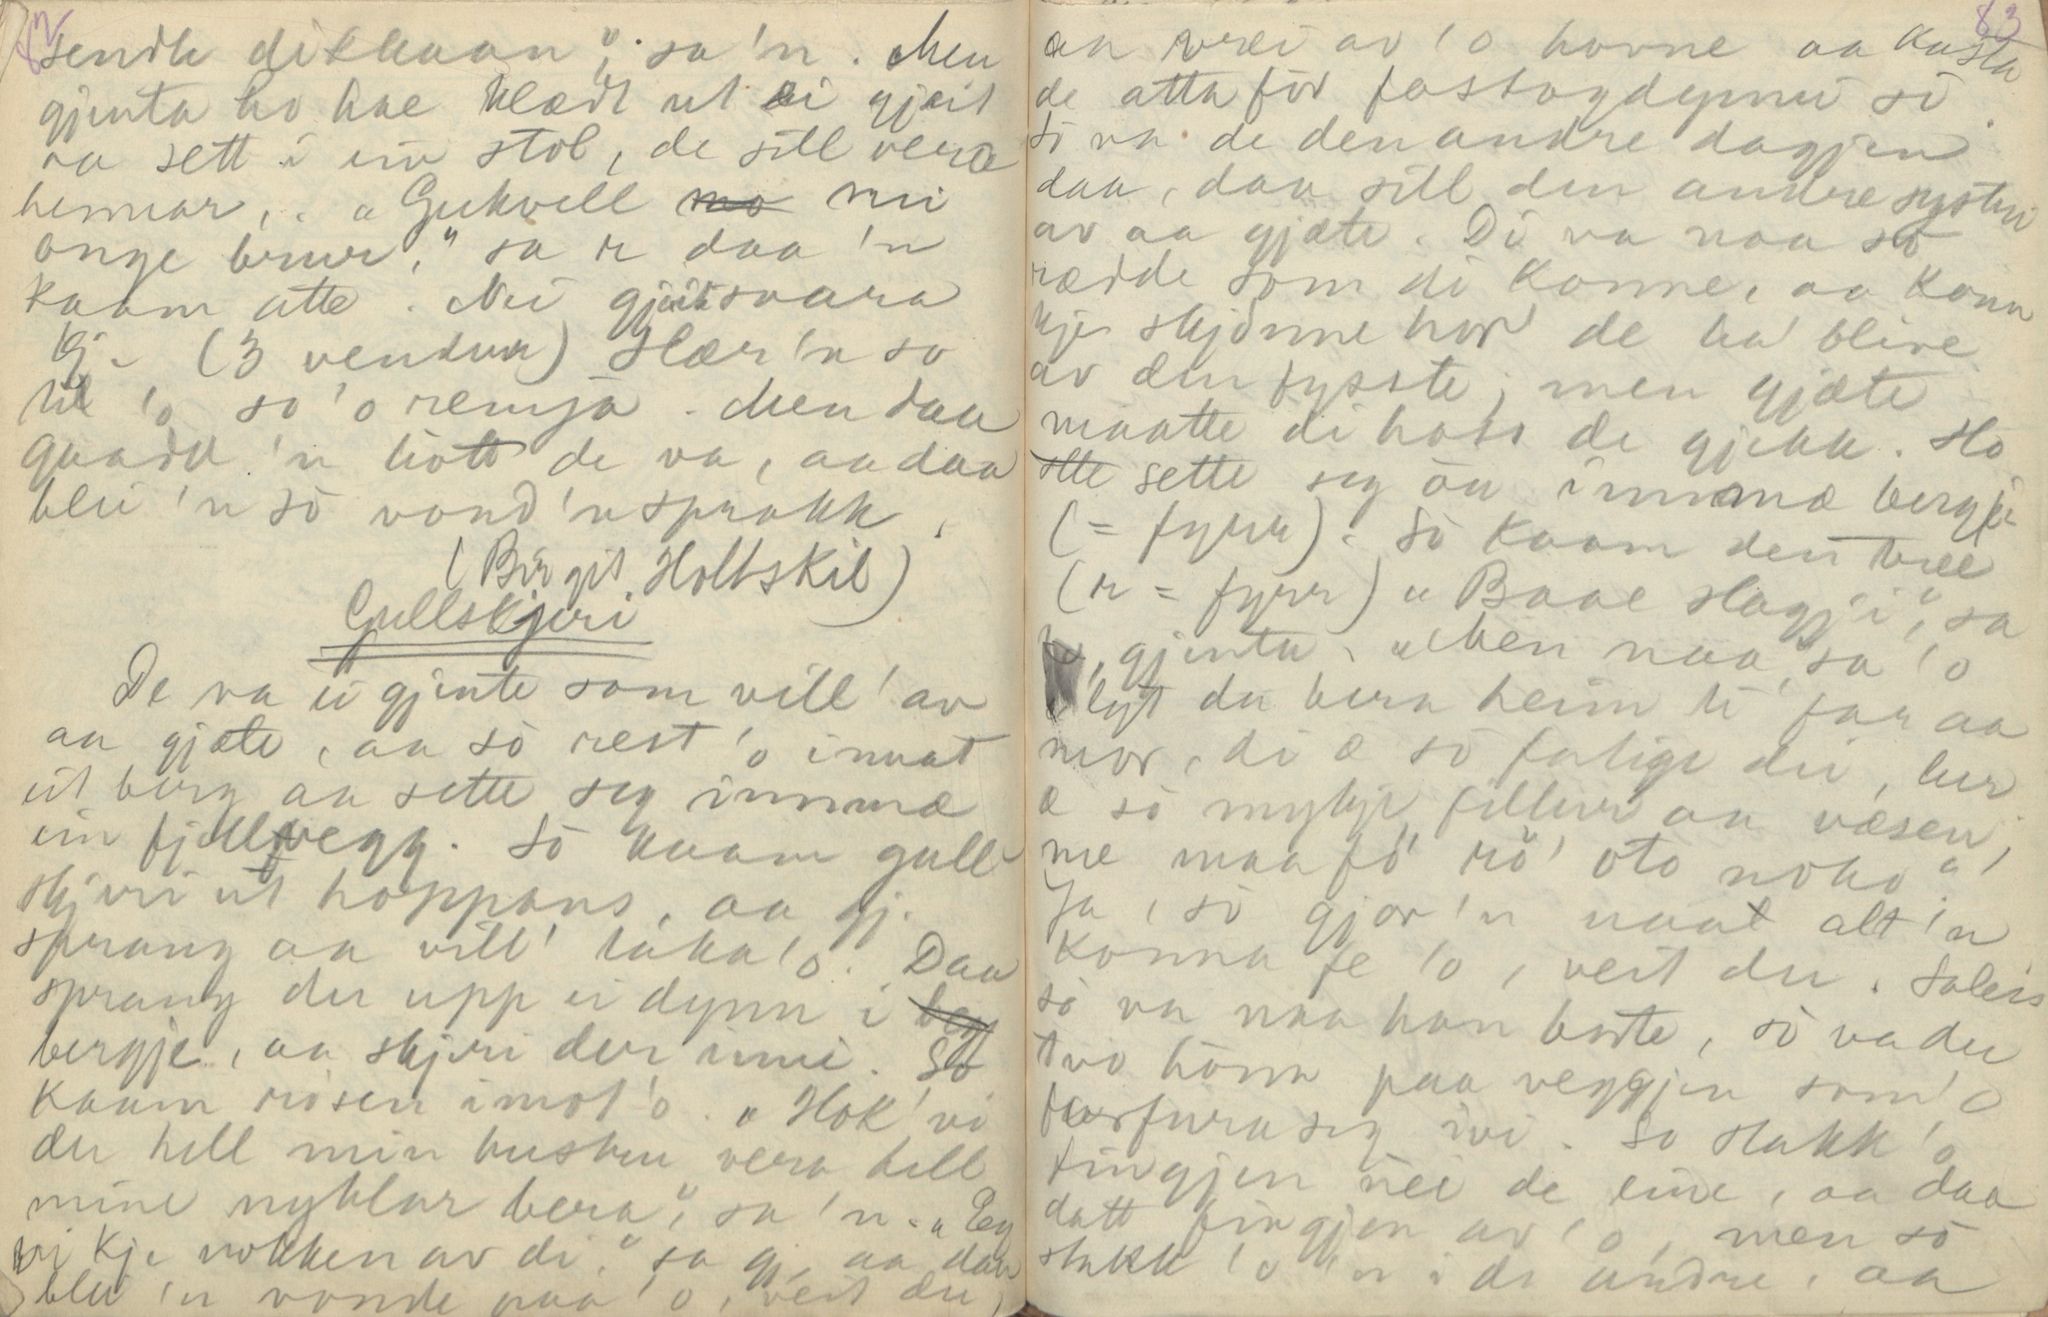 82
sendte dikkaan", sa 'n. Men
gjenta ho hae klædt ut ei gjeit
aa sett i ein stol, de sill vera
hennar, . "Gukvell mo mi
onge brur," sa r daa 'n
kaam atte. Nei gjeit svara
kj. (3 vendur) Slær 'n so
til 'o so 'o remja. Men daa
gaadd 'n hott de va, aa daa
blei 'n sò vond 'n sprakk.
(Birgit Holtskil)
Gullskjeri
De va ei gjente som vill' av
aa gjæte, aa sò rest 'o innat
eit berg aa sette seg innmæ
ein fjellvegg. Sò kaam gull
skjeri ut hoppans, aa gj.
sprang aa vill' taka 'o. Daa
sprang der upp ei dynn i berg
bergje, aa skjeri der inni. Sò
kaam risen imot 'o. "Hok' vi
du hell min hustru vera hell
mine nyklar bera", sa 'n. "Eg
vi kje nokken av di." sa gj. aa daa
blei 'n vonde paa 'o, veit du,
83
aa vrei av 'o hovue aa kasta
de atta för fostogdynni si.
Sò va de den andre dagjen
daa, daa sill den andre systri
av aa gjæte. Di va naa so
rædde som di konne, aa konn
kje skjønne hor de ha' blive
av den fysste, men gjæte
maatte di hoss de gjekk. Ho
sette sette seg òu innmæ bergje
(= fyrr). Sò kaam den tree
(r = fyrr) "Baae slagji", sa
gjenta. "Men naa" sa 'o
"lyt du bera heim ti far aa
mor, di æ sò fatige dei, her
æ sò mykje filler aa væsen,
me maa fò' rö' oto noko".
Ja, sò gjor 'n naat alt 'n
konna fe 'o, veit du. Saleis
sò va naa han borte, sò va der
tvo hònn paa veggjen som 'o
forfura seg ivi. So stakk 'o
fingjen nei de eine, aa daa
datt fingjen av 'o, men sò
stakk 'o 'n i de andre, aa